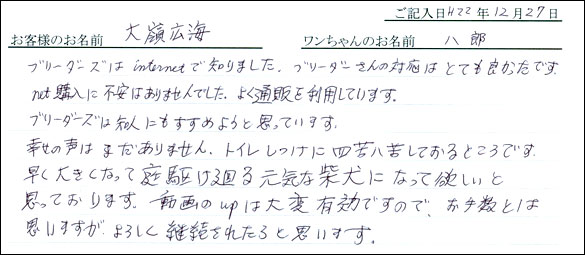 ご記入日H22年12月27日
お客様のお名前 大嶺広海 ワンちゃんのお名前 八郎
ブリーダーズは internetで知りました。ブリーダーさんの対応はとても良かったです。
net購入に不安はありませんでした。よく通販を利用しています。
ブリーダーズは知人にもすすめようと思っています。
幸せの声はまだありません。トイレしつけに四苦八苦しておるところです。
早く大きくなって庭駆け廻る元気な柴犬になって欲しいと
思っております。動画のupは大変有効ですので、お手数とは
思いますが、よろしく継続されたらと思います。